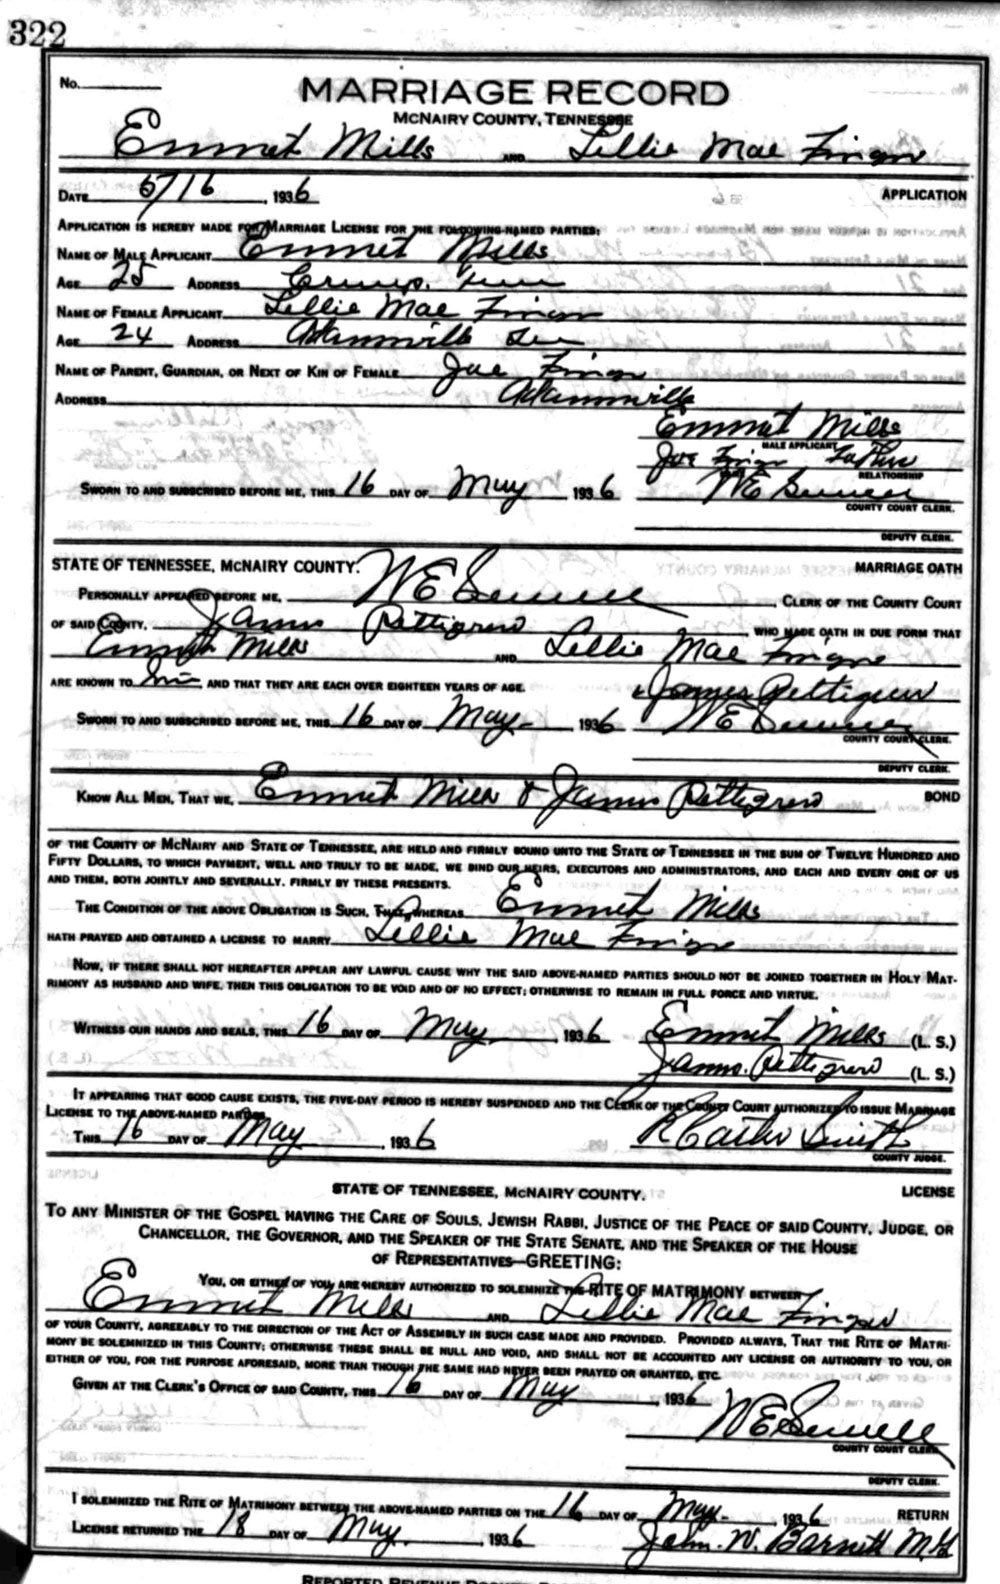 322
No.
MARRIAGE RECORD
McNAIRY COUNTY, TENNESSEE
Emmet Mills AND Lillie Mae Finger
DATE 5/16, 1936 APPLICATION
APPLICATION IS HEREBY MADE FOR MARRIAGE LICENSE FOR THE FOLLOWING-NAMED PARTIES:
NAME OF MALE APPLICANT Emmet Mills
AGE 25 ADDRESS Crump, Tenn
NAME OF FEMALE APPLICANT Lillie Mae Finger
AGE 24 ADDRESS Adamsville Ten
NAME OF PARENT, GUARDIAN, OR NEXT OF KIN OF FEMALE Joe Finger
ADDRESS Adamsville
Emmet Mills
MALE APPLICANT
Joe Finger Father
RELATIONSHIP
SWORN TO AND SUBSCRIBED BEFORE ME, THIS 16 DAY OF May, 1936 W E Sewell
COUNTY COURT CLERK.
DEPUTY CLERK.
STATE OF TENNESSEE, McNAIRY COUNTY. MARRIAGE OATH
PERSONALLY APPEARED BEFORE ME, W E Sewell, CLERK OF THE COUNTY COURT
OF SAID COUNTY, James Pettigrew, WHO MADE OATH IN DUE FORM THAT
Emmet Mills AND Lillie Mae Finger
ARE KNOWN TO him AND THAT THEY ARE EACH OVER EIGHTEEN YEARS OF AGE. James Pettigrew
SWORN TO AND SUBSCRIBED BEFORE ME, THIS 16 DAY OF May, 1936 W E Sewell
COUNTY COURT CLERK.
DEPUTY CLERK.
KNOW ALL MEN, THAT WE, Emmet Mills & James Pettigrew BOND
OF THE COUNTY OF McNAIRY AND STATE OF TENNESSEE, ARE HELD AND FIRMLY BOUND UNTO THE STATE OF TENNESSEE IN THE SUM OF TWELVE HUNDRED AND
FIFTY DOLLARS, TO WHICH PAYMENT, WELL AND TRULY TO BE MADE, WE BIND OUR HEIRS, EXECUTORS AND ADMINISTRATORS, AND EACH AND EVERY ONE OF US
AND THEM, BOTH JOINTLY AND SEVERALLY. FIRMLY BY THESE PRESENTS.
THE CONDITION OF THE ABOVE OBLIGATION IS SUCH, THAT, WHEREAS Emmet Mills
HATH PRAYED AND OBTAINED A LICENSE TO MARRY Lillie Mae Finger
NOW, IF THERE SHALL NOT HEREAFTER APPEAR ANY LAWFUL CAUSE WHY THE SAID ABOVE-NAMED PARTIES SHOULD NOT BE JOINED TOGETHER IN HOLY MAT-
RIMONY AS HUSBAND AND WIFE, THEN THIS OBLIGATION TO BE VOID AND OF NO EFFECT; OTHERWISE TO REMAIN IN FULL FORCE AND VIRTUE.
WITNESS OUR HANDS AND SEALS, THIS 16 DAY OF May, 1936 Emmet Mills (L. S.)
James Pettigrew (L. S.)
IT APPEARING THAT GOOD CAUSE EXISTS, THE FIVE-DAY PERIOD IS HEREBY SUSPENDED AND THE CLERK OF THE COUNTY COURT AUTHORIZED TO ISSUE MARRIAGE
LICENSE TO THE ABOVE-NAMED PARTIES.
THIS 16 DAY OF May, 1936 R Carter Smith
COUNTY JUDGE.
STATE OF TENNESSEE, McNAIRY COUNTY. LICENSE
TO ANY MINISTER OF THE GOSPEL HAVING THE CARE OF SOULS, JEWISH RABBI, JUSTICE OF THE PEACE OF SAID COUNTY, JUDGE, OR
CHANCELLOR, THE GOVERNOR, AND THE SPEAKER OF THE STATE SENATE, AND THE SPEAKER OF THE HOUSE
OF REPRESENTATIVES—GREETING:
YOU, OR EITHER OF YOU ARE HEREBY AUTHORIZED TO SOLEMNIZE THE RITE OF MATRIMONY BETWEEN
Emmet Mills AND Lillie Mae Finger
OF YOUR COUNTY, AGREEABLY TO THE DIRECTION OF THE ACT OF ASSEMBLY IN SUCH CASE MADE AND PROVIDED. PROVIDED ALWAYS, THAT THE RITE OF MATRI-
MONY BE SOLEMNIZED IN THIS COUNTY; OTHERWISE THESE SHALL BE NULL AND VOID, AND SHALL NOT BE ACCOUNTED ANY LICENSE OR AUTHORITY TO YOU, OR
EITHER OF YOU, FOR THE PURPOSE AFORESAID, MORE THAN THOUGH THE SAME HAD NEVER BEEN PRAYED OR GRANTED, ETC.
GIVEN AT THE CLERK'S OFFICE OF SAID COUNTY, THIS 16 DAY OF May, 1936
W E Sewell
COUNTY COURT CLERK
DEPUTY CLERK.
I SOLEMNIZED THE RITE OF MATRIMONY BETWEEN THE ABOVE-NAMED PARTIES ON THE 16 DAY OF May, 1936 RETURN
LICENSE RETURNED THE 18 DAY OF May, 1936 John. W. Barnett M.G